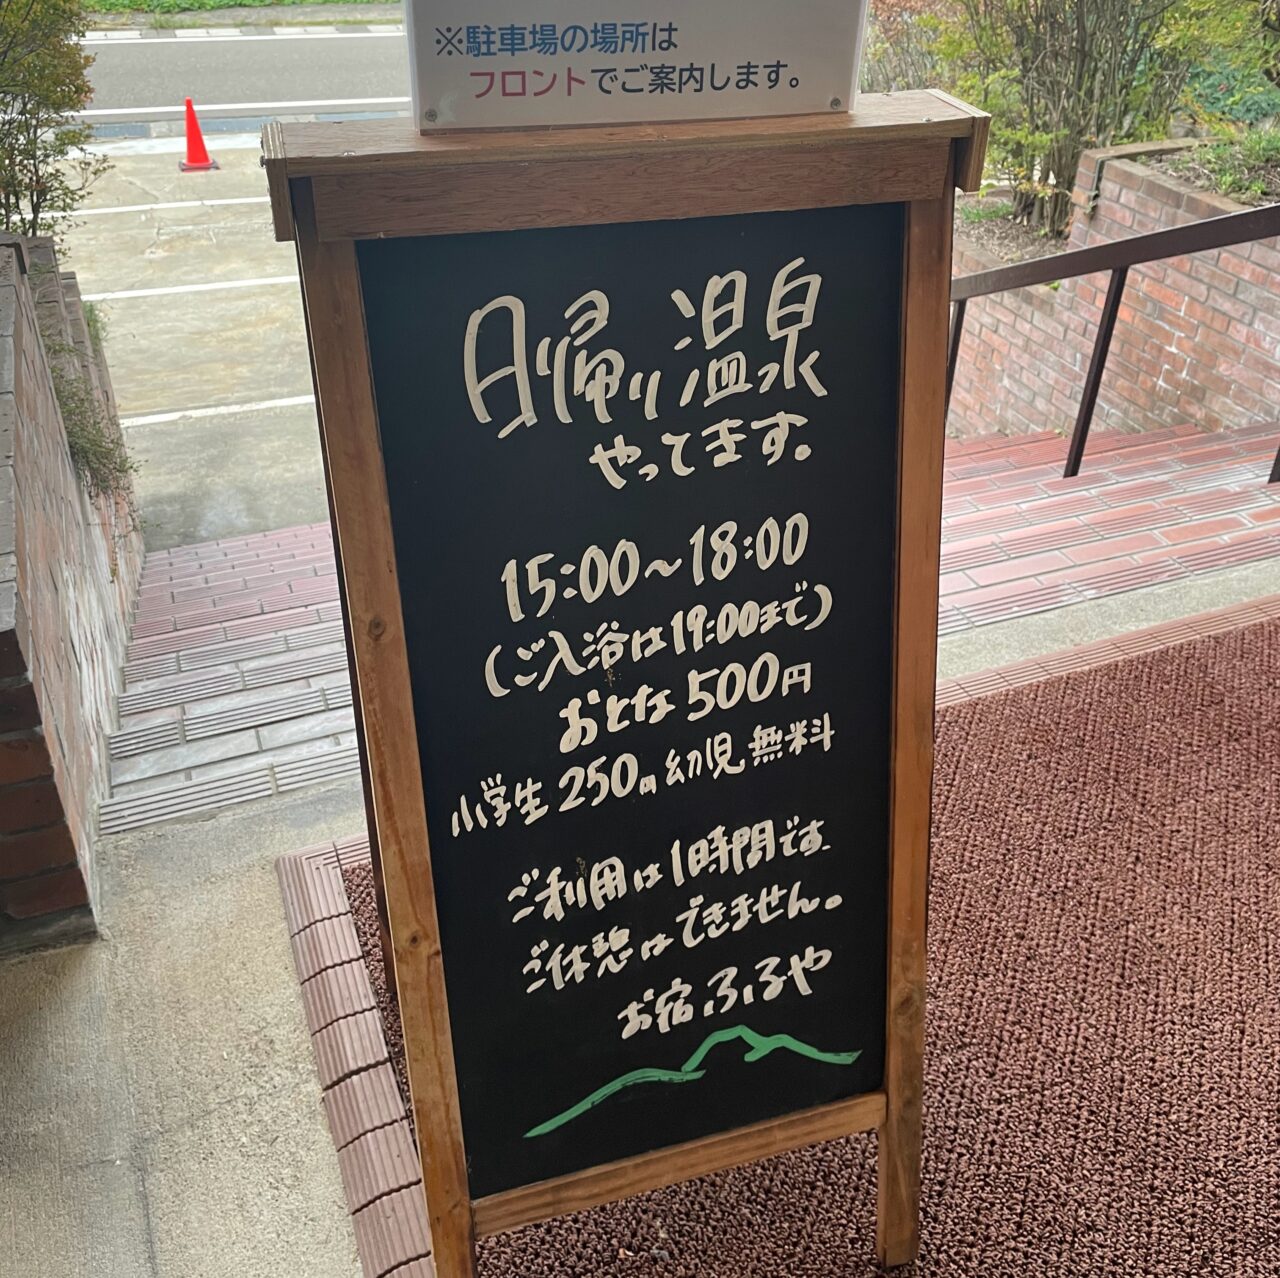 ※駐車場の場所は
フロントでご案内します。
日帰り温泉
やってます。
15:00〜18:00
(ご入浴は19:00まで)
おとな500円
小学生250円幼児無料
ご利用は1時間です
ご休憩はできません。
お宿ふるや